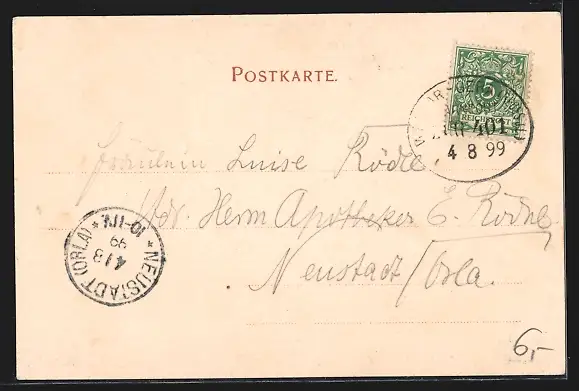 POSTKARTE.
5
REICHSPOST
ZUG 401
4 8 99
Fräulein Luise Rödel
Adr. Herrn Apotheker E. Rödel
Neustadt/Orla.
* NEUSTADT (ORLA) * 10-11V.
4/8
99
6,-